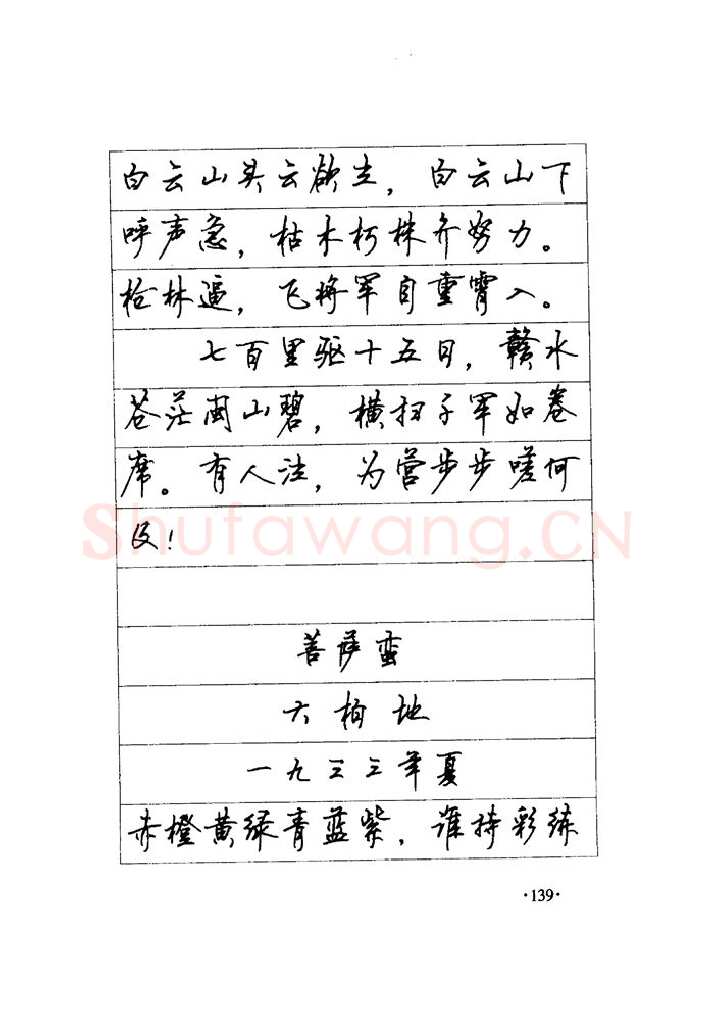 白云山头云欲立，白云山下
呼声急，枯木朽株齐努力。
枪林逼，飞将军自重霄入。
七百里驱十五日，赣水
苍茫闽山碧，横扫千军如卷
席。有人泣，为营步步嗟何
及！
Shufawang.CN
菩萨蛮
大柏地
一九三三年夏
赤橙黄绿青蓝紫，谁持彩练
·139·